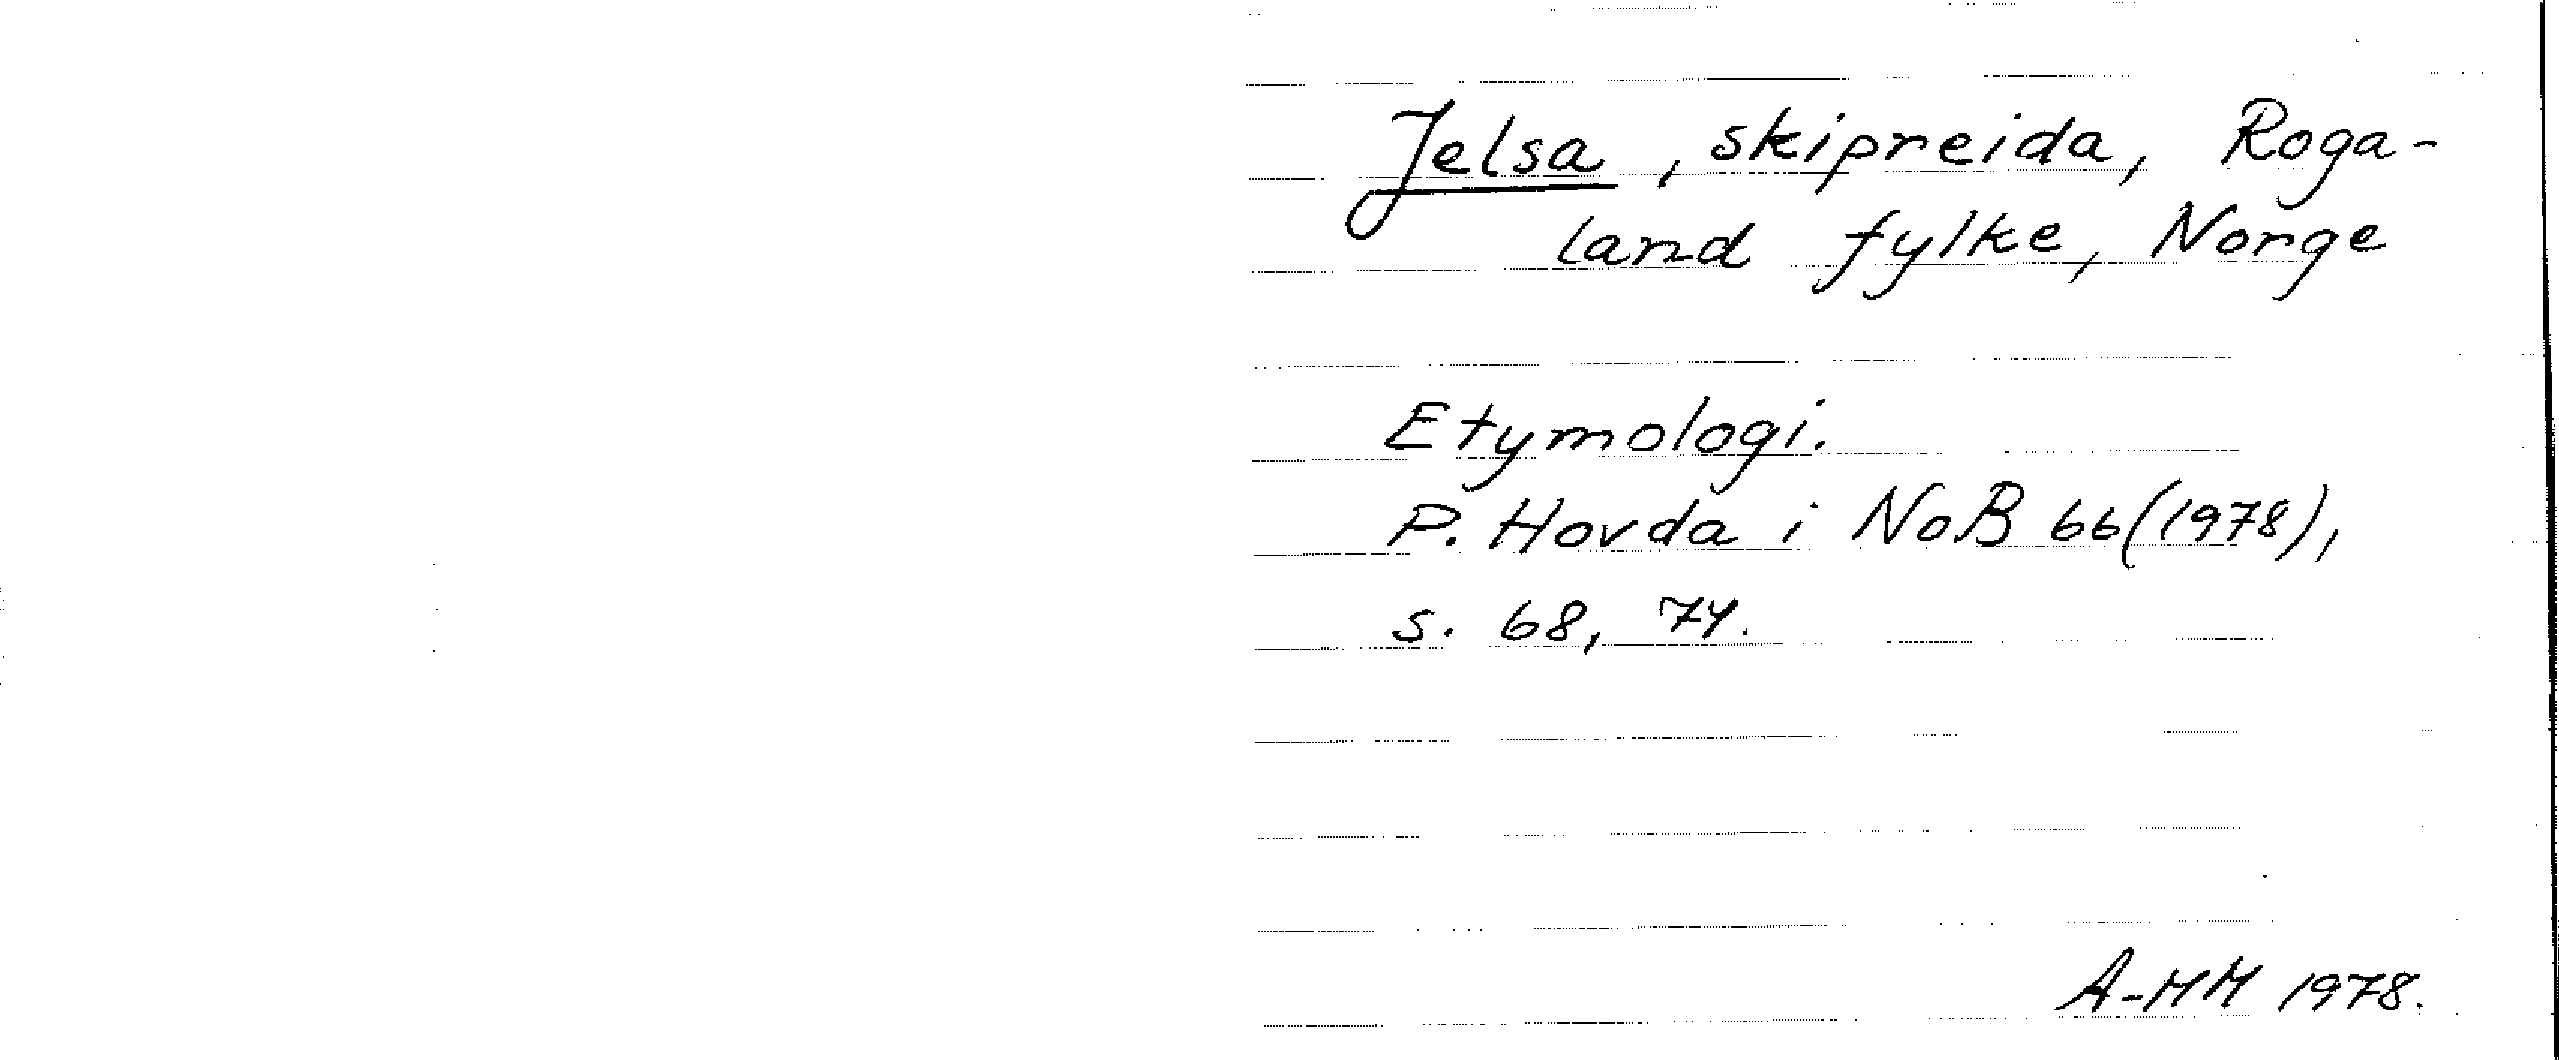 Jelsa, skipreida, Roga-
land fylke, Norge
Etymologi.
P. Hovda i NoB 66(1978),
s. 68, 74.
A-MM 1978.